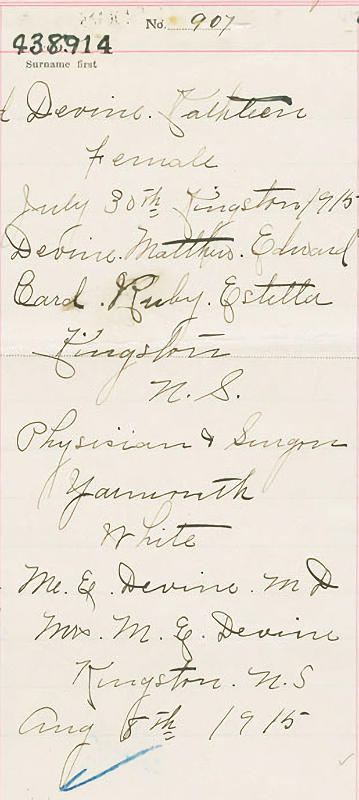 No. 907
438914
Surname first
Devine. Kathleen
Female
July 30th Kingston 1915
Devine. Matthew. Edward
Card. Ruby. Estella
Kingston
N. S.
Physician & Surgeon
Yarmouth
White
M. E. Devine. M D
Mrs. M. E. Devine
Kingston. N. S
Aug 8th 1915